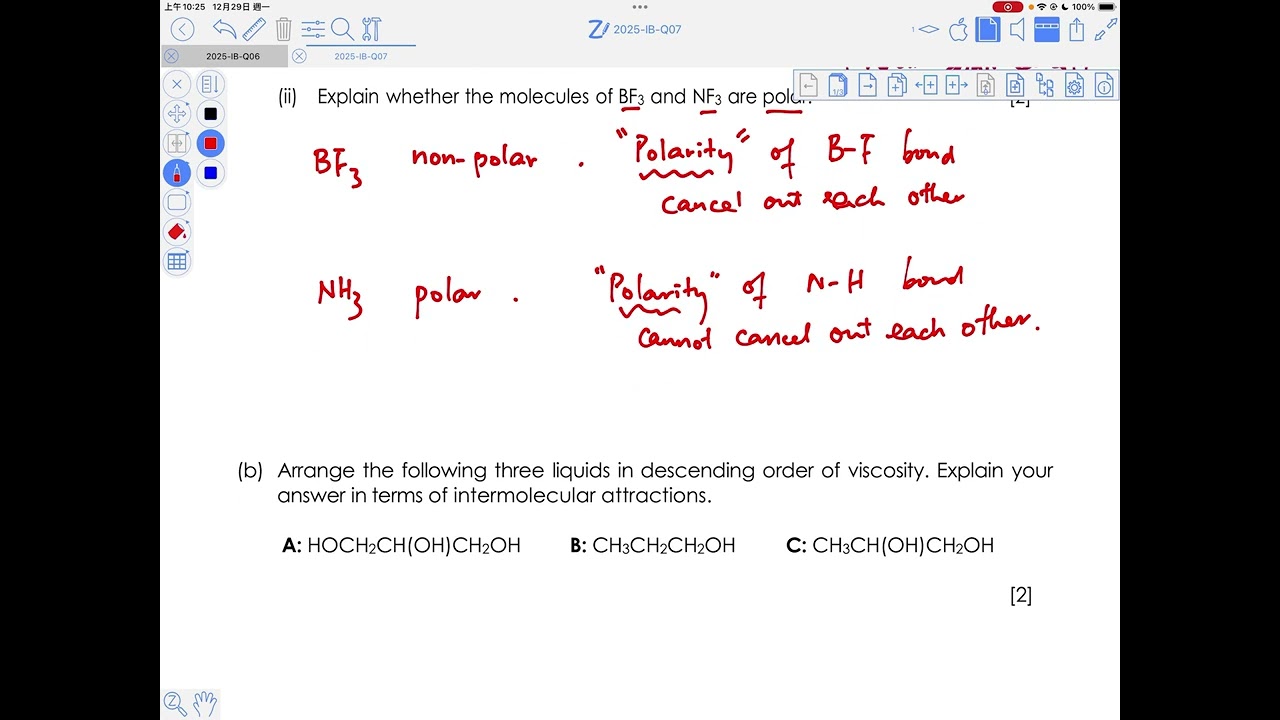 上午10:25 12月29日 週一
100%
2025-IB-Q07
2025-IB-Q06
2025-IB-Q07
(ii) Explain whether the molecules of BF3 and NF3 are polar. [2]
BF3 non-polar . "Polarity" of B-F bond
cancel out each other
NH3 polar . "Polarity" of N-H bond
cannot cancel out each other.
(b) Arrange the following three liquids in descending order of viscosity. Explain your
answer in terms of intermolecular attractions.
A: HOCH2CH(OH)CH2OH B: CH3CH2CH2OH C: CH3CH(OH)CH2OH
[2]